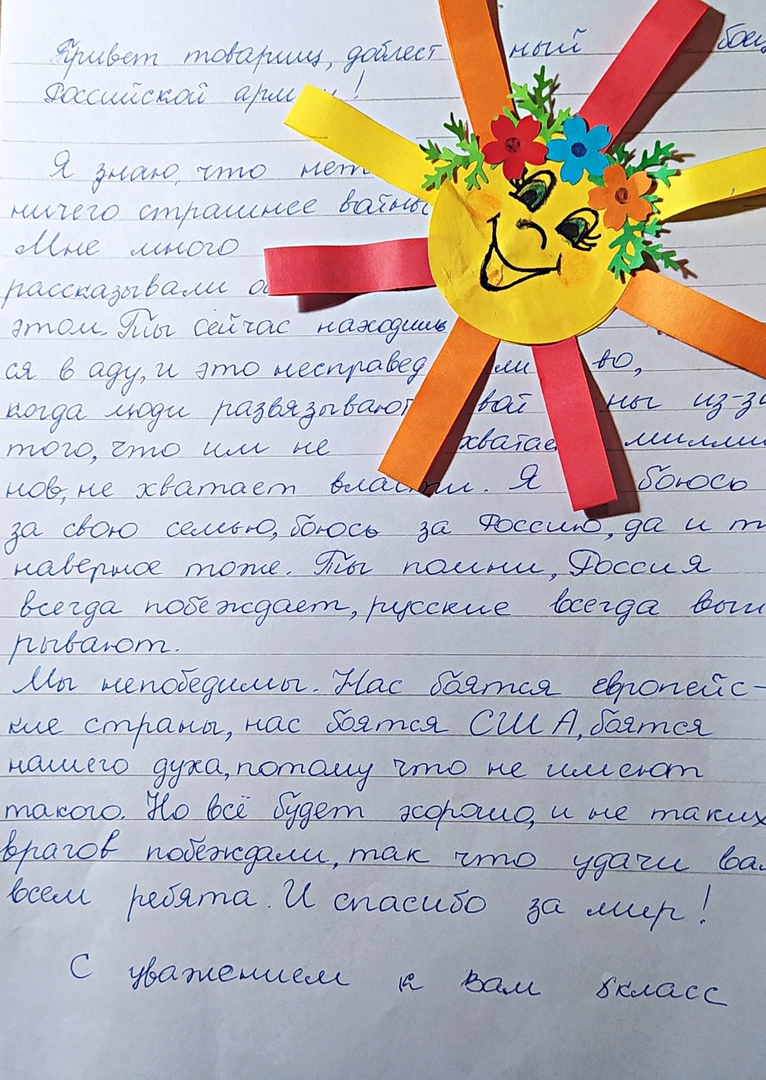 Привет товарищ, доблест ный боец
Российской армии!
Я знаю, что нет
ничего страшнее войны
Мне много
рассказывали о
этом. Ты сейчас находишь
ся в аду, и это несправед ли во,
когда люди развязывают вой ны из-за
того, что им не хватает миллио
нов, не хватает власти. Я боюсь
за свою семью, боюсь за Россию, да и т
наверное тоже. Ты помни, Россия
всегда побеждает, русские всегда выиг
рывают.
Мы непобедимы. Нас боятся европейс-
кие страны, нас боятся США, боятся
нашего духа, потому что не имеют
такого. Но всё будет хорошо, и не таких
врагов побеждали, так что удачи вам
всем ребята. И спасибо за мир!
С уважением к вам 8класс